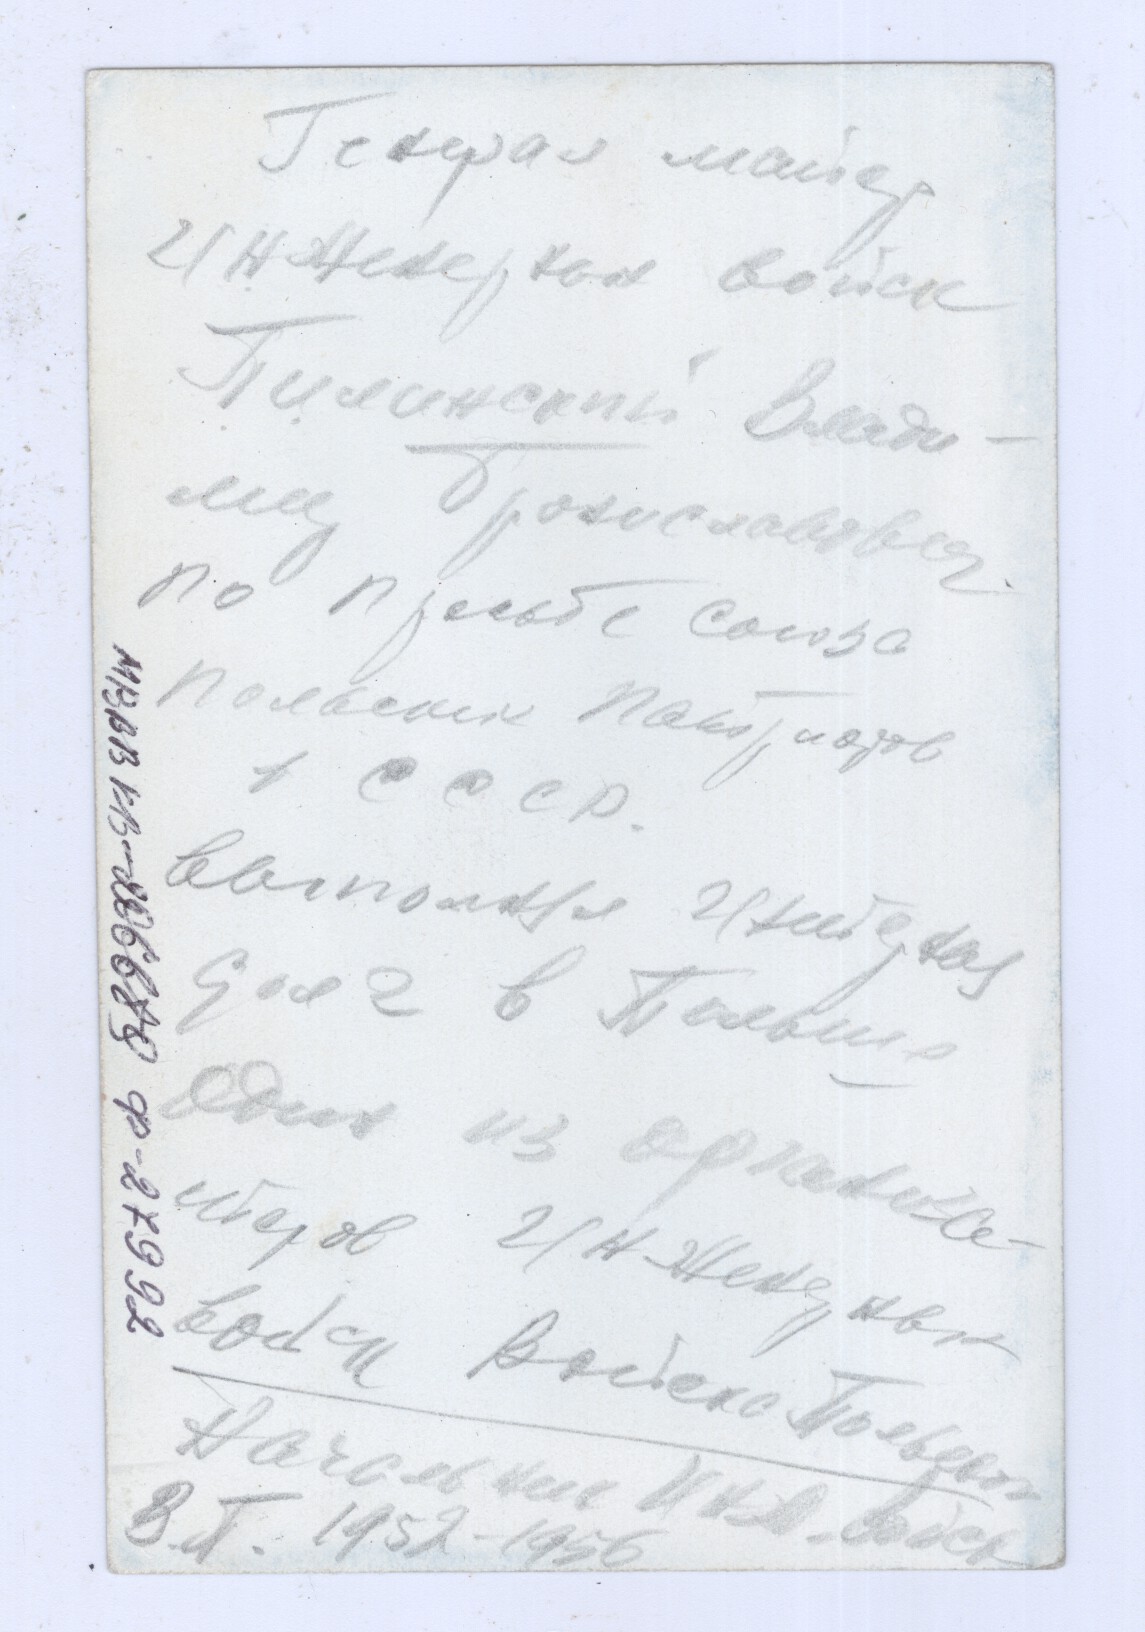 Генерал майор
инженерных войск
Пилинский Влади-
мир Брониславович
по просьбе Союза
Польских Патриотов
в СССР.
выполнял интерна
долг в Польше
Один из организа-
торов инженерных
войск Войско Польского
Начальник инж. войск
В.П. 1952-1956
МВВВ КВ-286689 Ф-27992